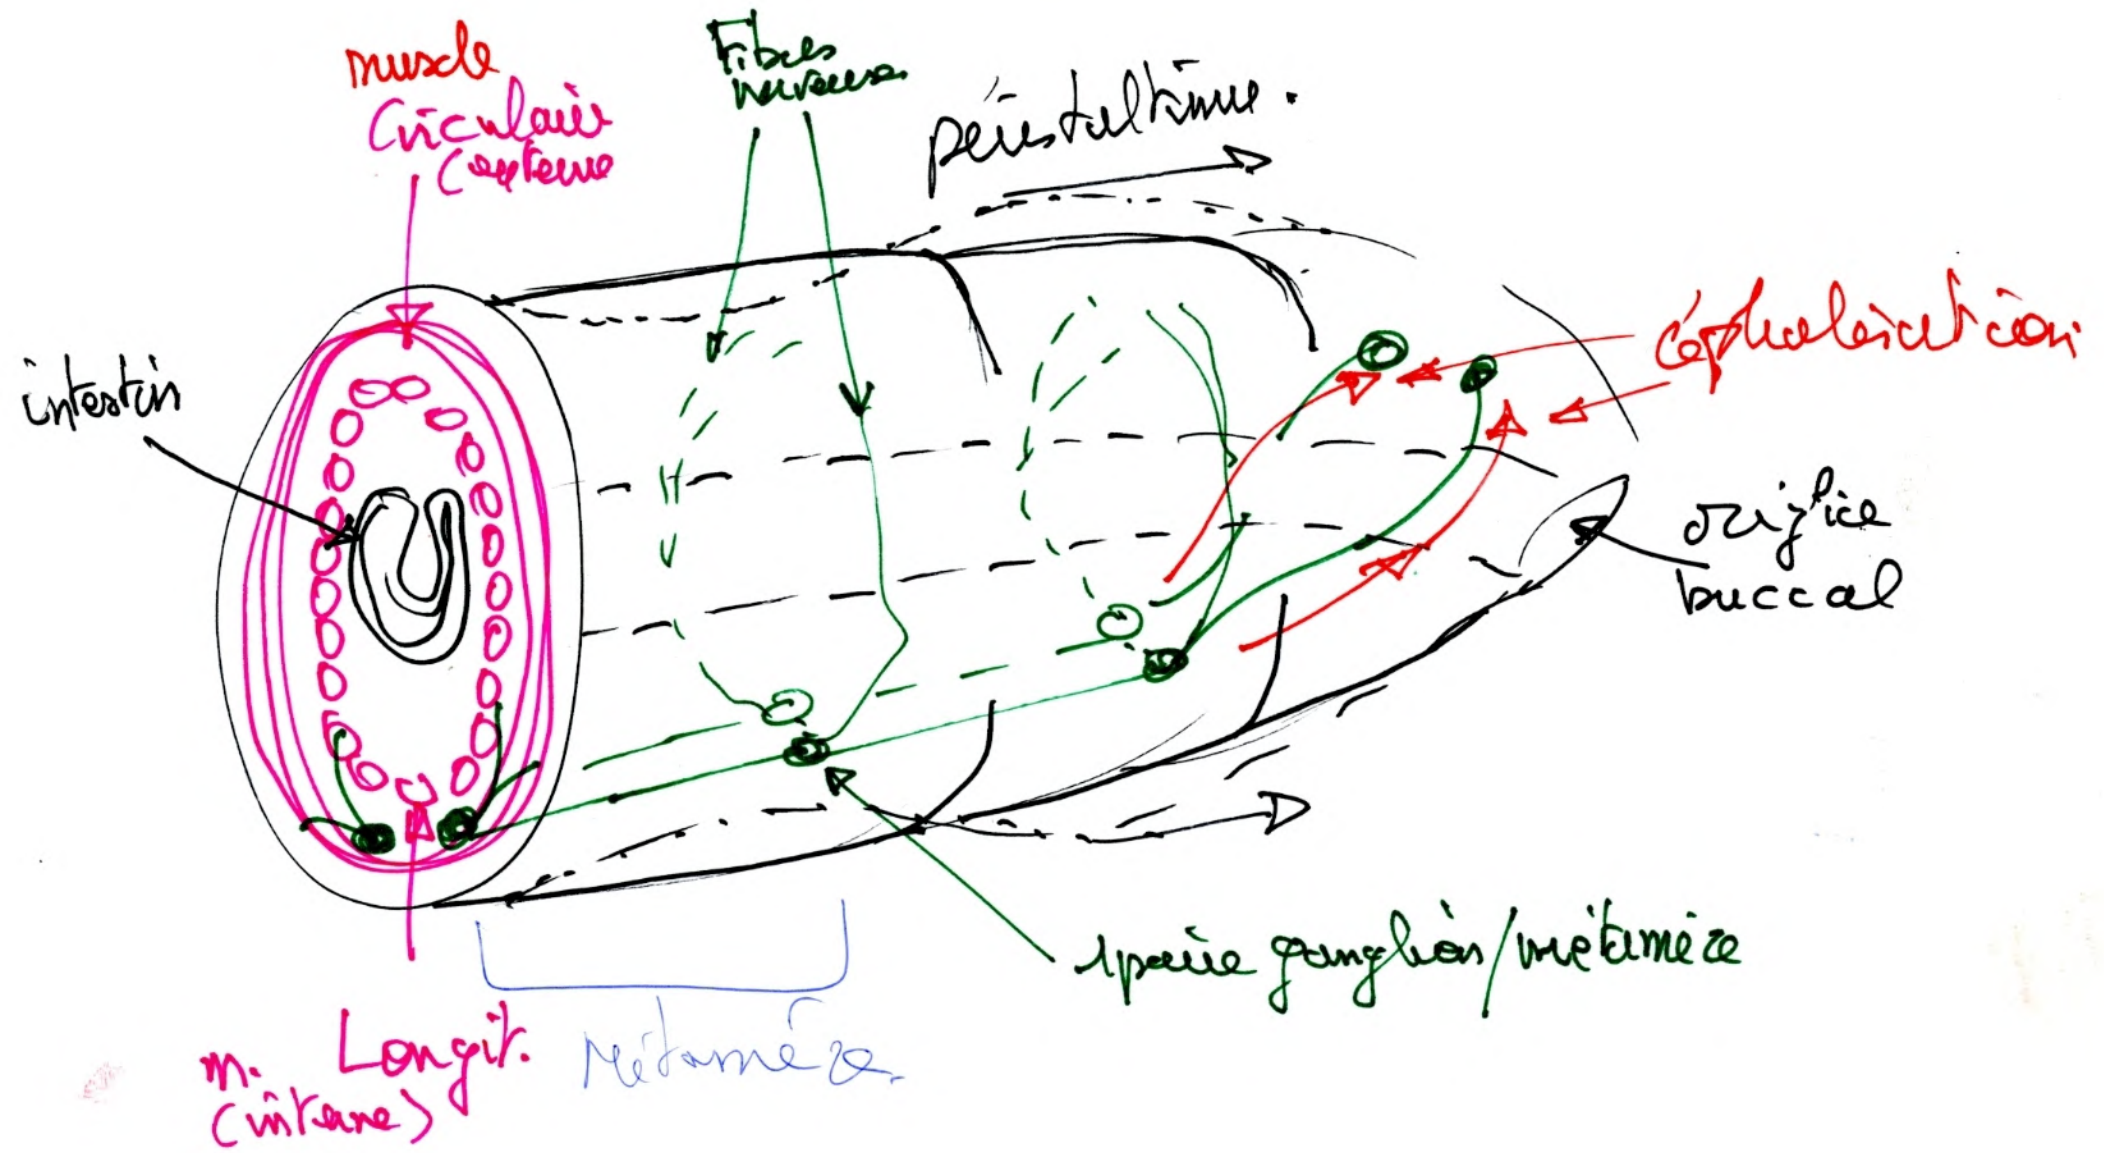 muscle
Circulaire
(externe
Fibres
nerveuses
péristaltisme.
intestin
céphalisation
orifice
buccal
1 paire ganglions/métamère
Métamère.
m. Longit.
(interne)